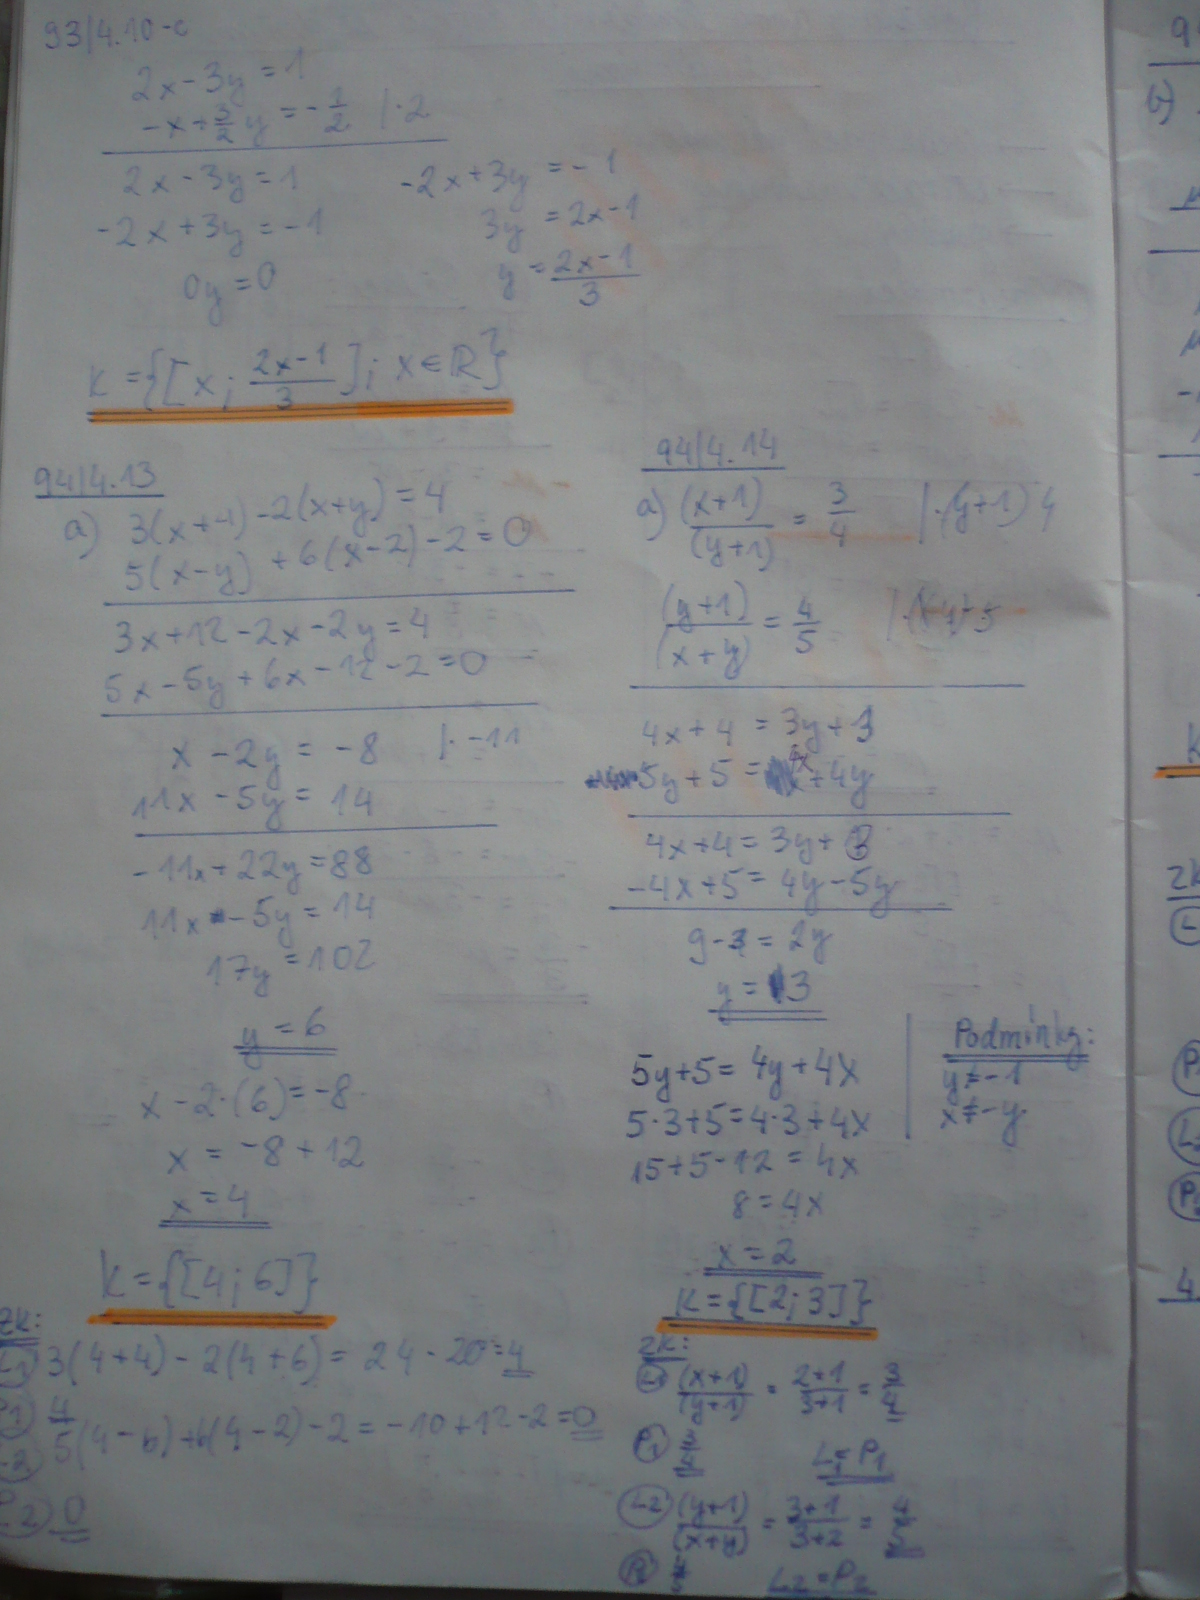 93/4.10-c
2x-3y=1
-x+3/2y=-1/2 |·2
2x-3y=1
-2x+3y=-1
0y=0
-2x+3y=-1
3y=2x-1
y=(2x-1)/3
K={[x; (2x-1)/3]; x∈ℝ}
94/4.13
a) 3(x+4)-2(x+y)=4
5(x-y)+6(x-2)-2=0
3x+12-2x-2y=4
5x-5y+6x-12-2=0
x-2y=-8 |·-11
11x-5y=14
-11x+22y=88
11x-5y=14
17y=102
y=6
x-2·(6)=-8
x=-8+12
x=4
K={[4;6]}
ZK:
3(4+4)-2(4+6)=24-20=4
4
5(4-6)+6(4-2)-2=-10+12-2=0
0
94/4.14
a) (x+1)/(y+1)=3/4 |·(y+1)4
(y+1)/(x+y)=4/5
4x+4=3y+3
5y+5=4x+4y
4x+4=3y+3
-4x+5=4y-5y
9-3=2y
y=3
Podmínky:
y≠-1
x≠-y
5y+5=4y+4x
5·3+5=4·3+4x
15+5-12=4x
8=4x
x=2
K={[2;3]}
ZK:
L1 (x+1)/(y+1)=(2+1)/(3+1)=3/4
P1 3/4
L1=P1
L2 (y+1)/(x+y)=(3+1)/(3+2)=4/5
P2 4/5
L2=P2